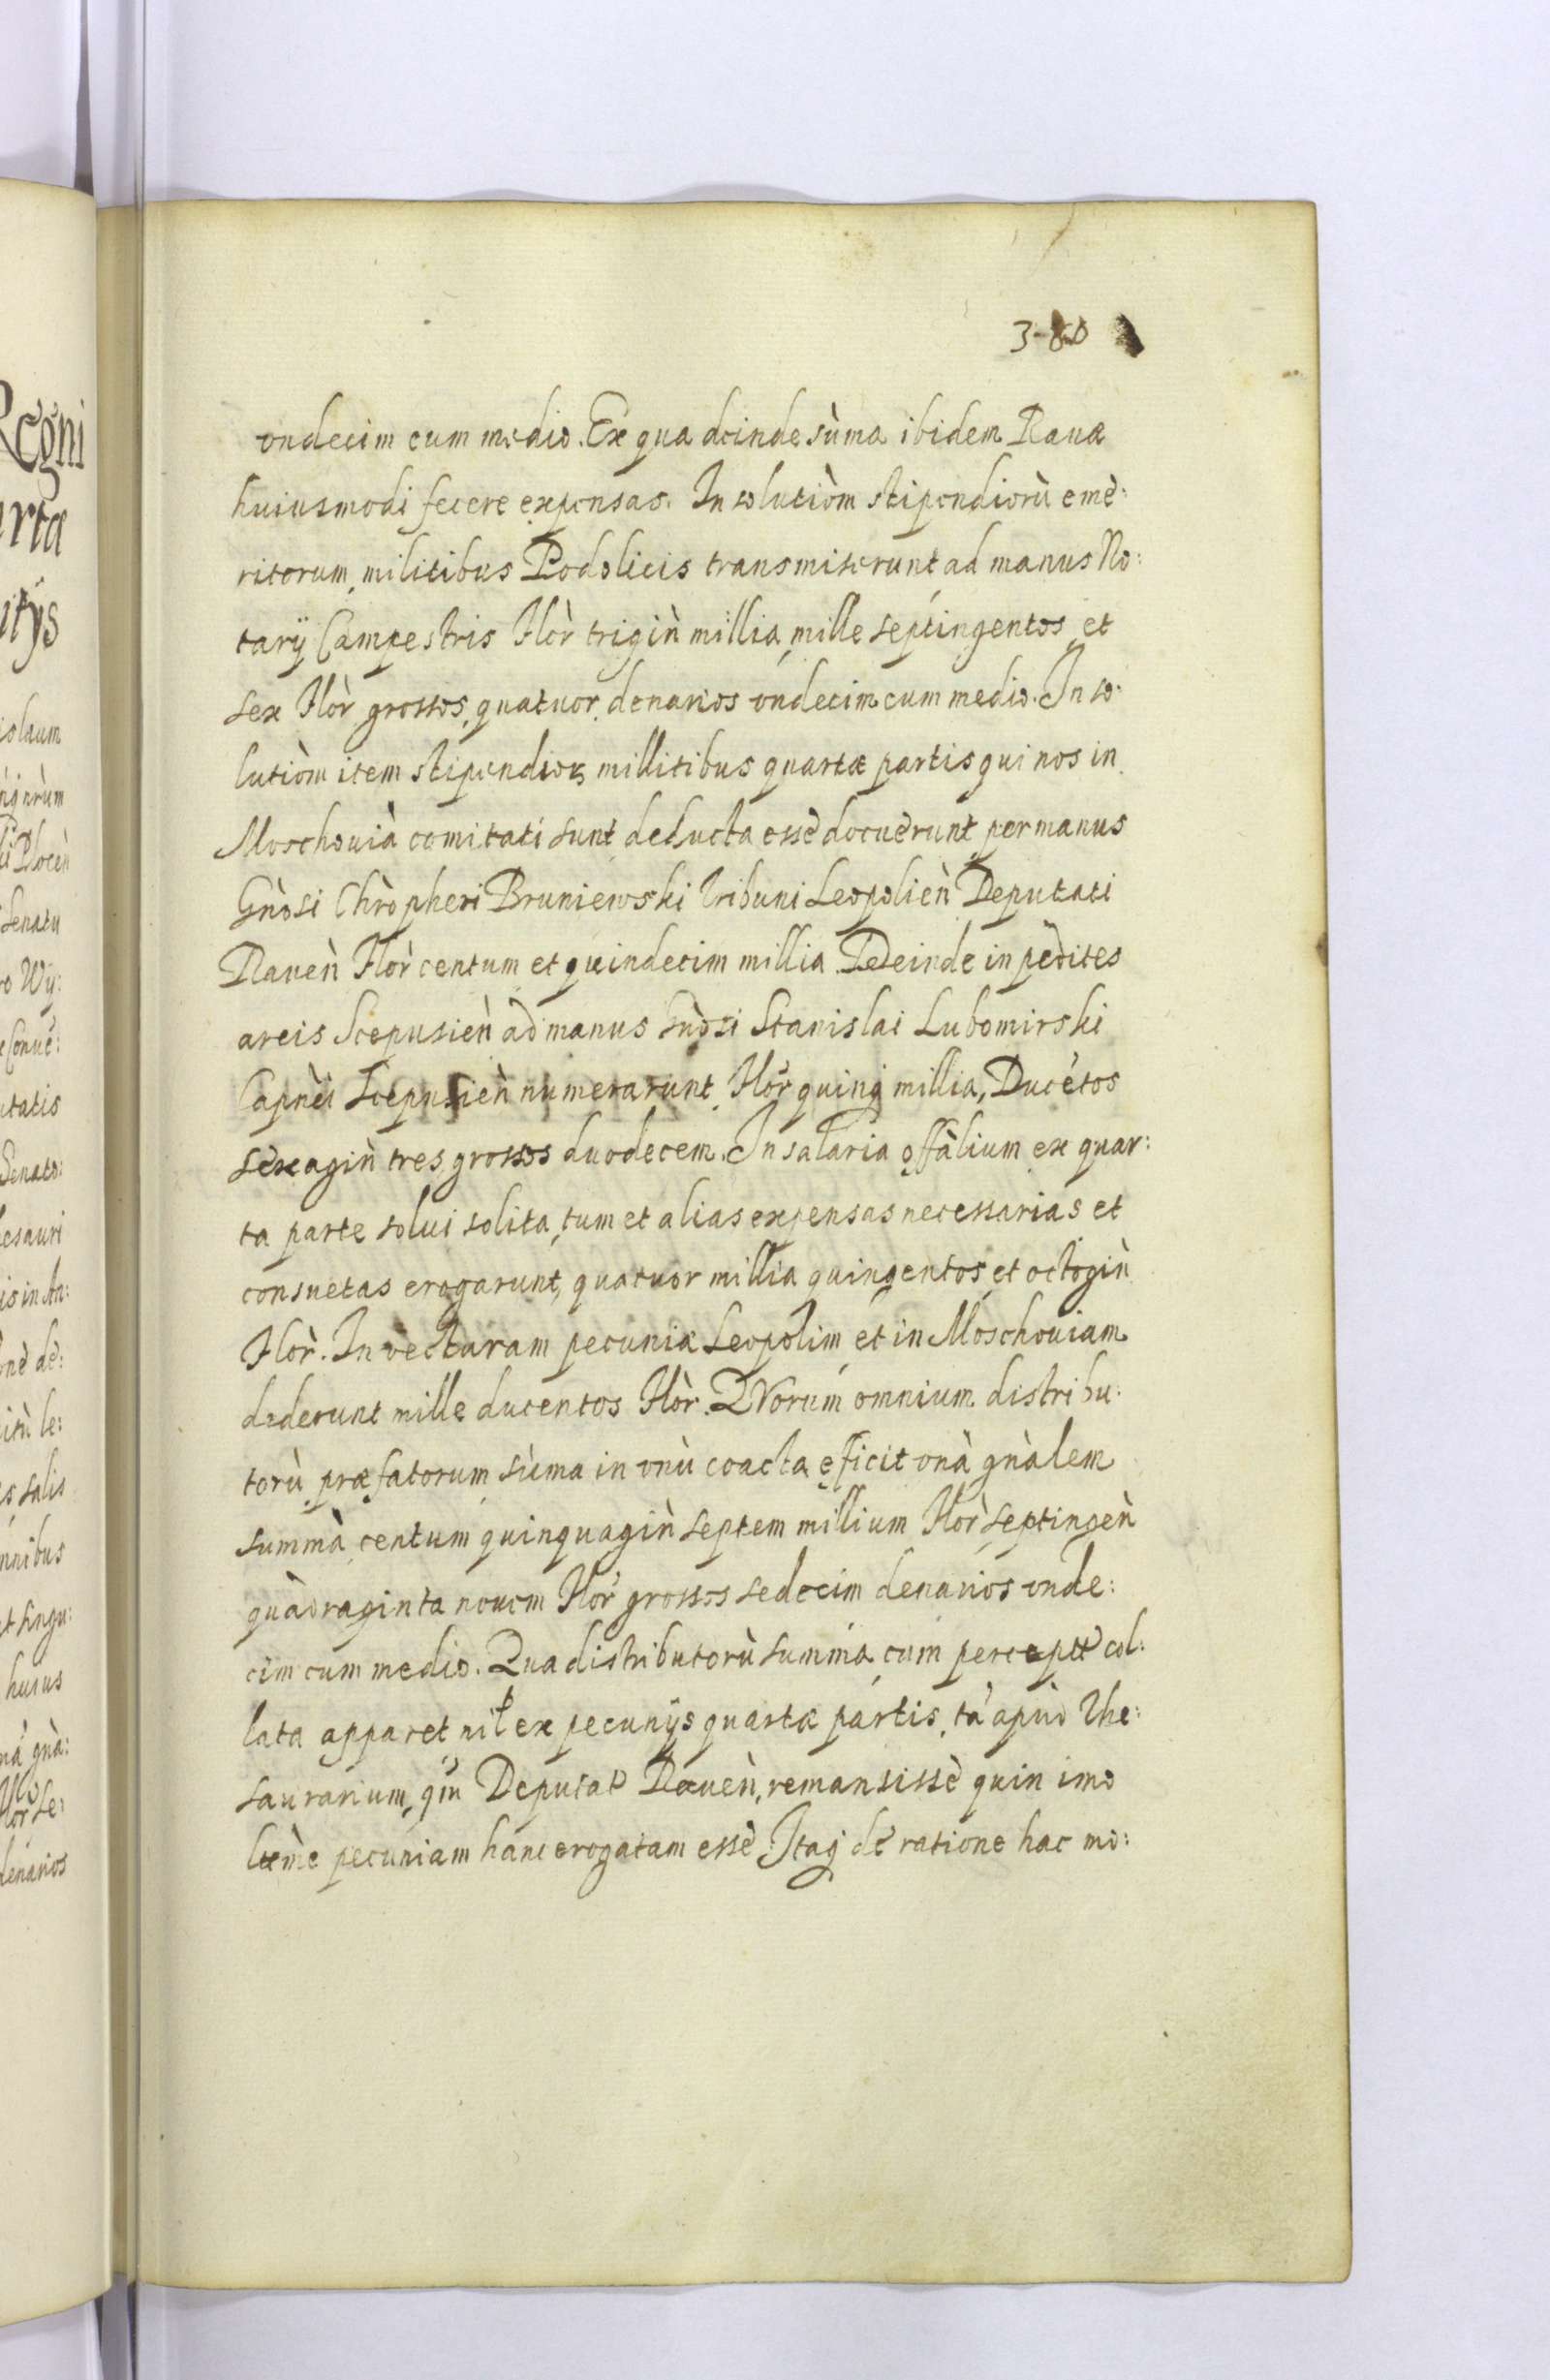 3-80
ondecim cum medio. Ex qua deinde sùma ibidem Rauæ
huiusmodi fecere expensas. In solutiòm stipendiorù emè:
ritorum, militibus Podolicis transmiserunt ad manus No:
tarÿ Campestris Flòr trigiǹ millia, mille septingentos et
sex Flòr grossos quatuor denarios ondecim cum medio. In so:
lutiòm item stipendior millitibus quartæ partis qui nos in
Moschouià comitati sunt deducta essè docuerunt per manus
Gǹosi Chròpheri Bruniewski Tribuni Leopolieǹ Deputati
Raueǹ Flòr centum et quindecim millia. Deinde in pedites
arcis Scepusieǹ ad manus Gǹosi Stanislai Lubomirski
Capǹei Scepusieǹ numerarunt Flòr quinq millia, Ducétos
sexagiǹ tres grossos duodecem. In salaria offàlium ex quar:
ta parte solui solita, tum et alias expensas necessarias et
consuetas erogarunt, quatuor millia quingentos et octogiǹ
Flòr. In vecturam pecuniæ Leopolim et in Moschouiam
dederunt mille ducentos Flòr. QVorum omnium distribu:
torù præfatorum sùma in onù coacta eficit onà gǹàlem
summà centum quinquagiǹ septem millium Flòr septingeǹ
quadraginta nouem Flòr grossos sedecim denarios onde:
cim cum medio. Qua distributorù summa cum percept col:
lata apparet nil ex pecunÿs quartæ partis, tà apùd The:
saurarium qm Deputat Raueǹ, remansissè quin imo
pecuniam hanc erogatam essè. Itaq de ratione hac mo:
Regni